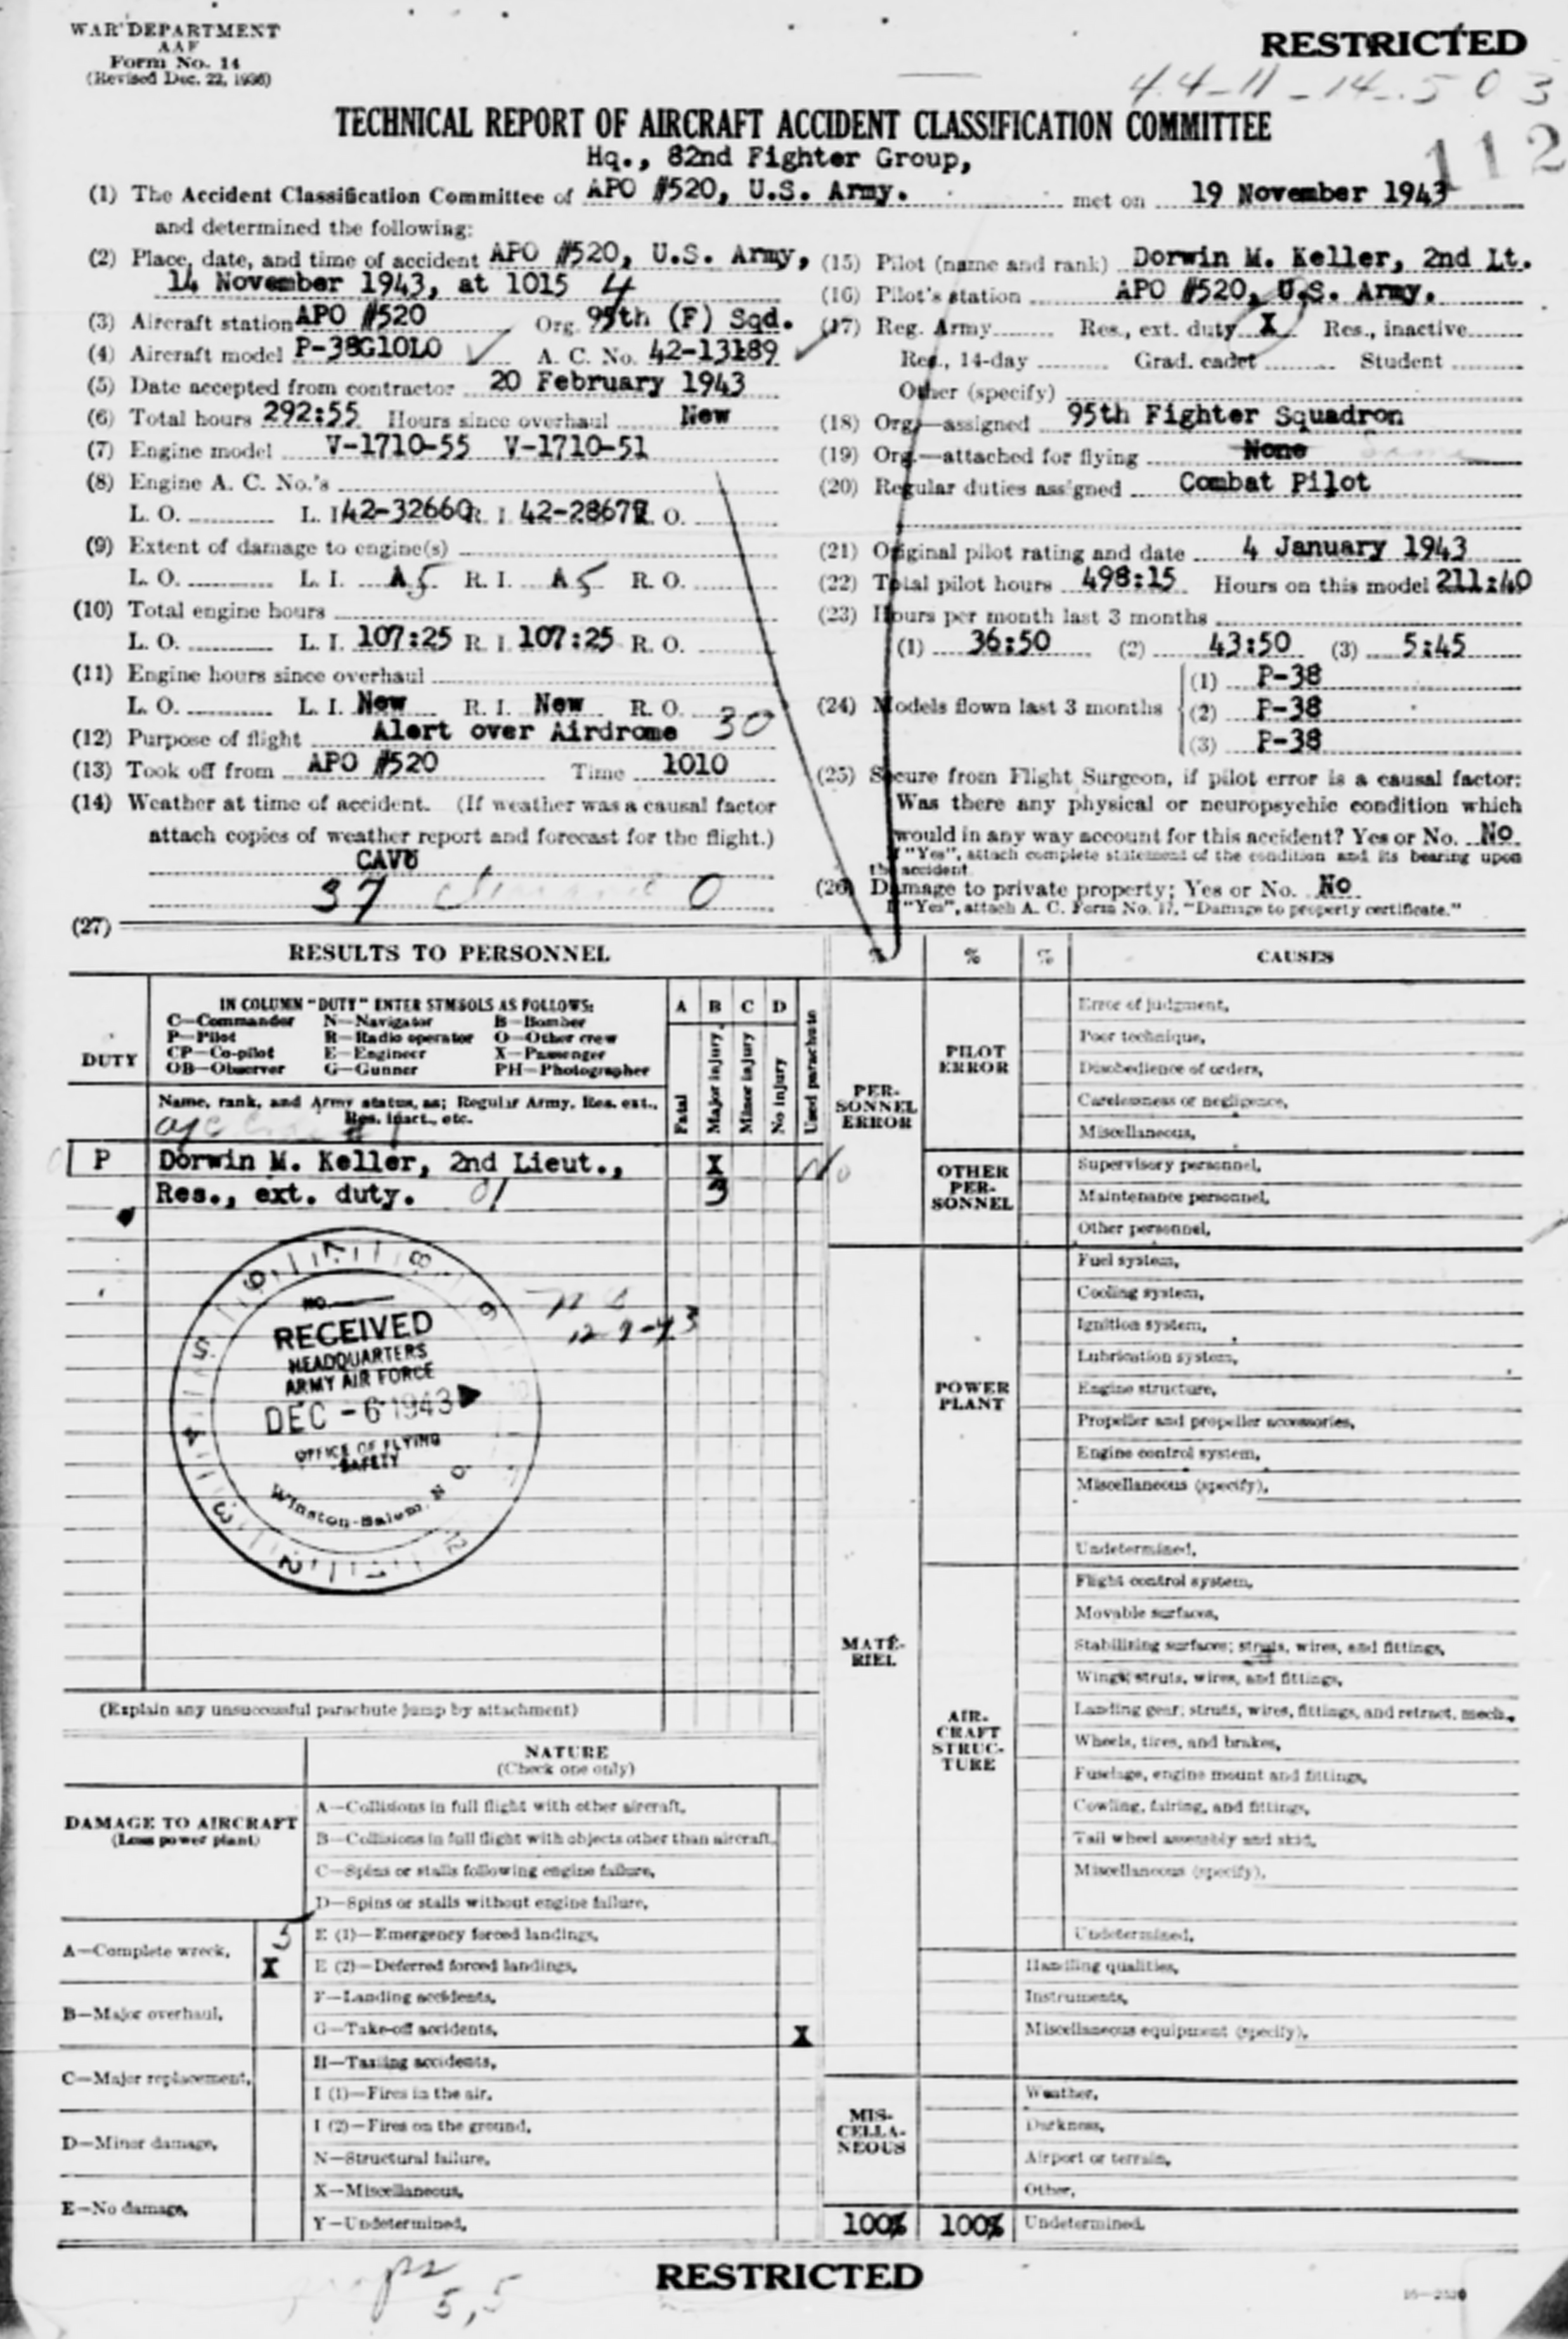 WAR DEPARTMENT
AAF
Form No. 14
(Revised Dec. 22, 1936)
RESTRICTED
44-11-14-503
112
TECHNICAL REPORT OF AIRCRAFT ACCIDENT CLASSIFICATION COMMITTEE
Hq., 82nd Fighter Group,
(1) The Accident Classification Committee of APO #520, U.S. Army. met on 19 November 1943
and determined the following:
(2) Place, date, and time of accident APO #520, U.S. Army,
14 November 1943, at 1015 4
(3) Aircraft station APO #520 Org. 95th (F) Sqd.
(4) Aircraft model P-38G10LO A. C. No. 42-13189
(5) Date accepted from contractor 20 February 1943
(6) Total hours 292:55 Hours since overhaul New
(7) Engine model V-1710-55 V-1710-51
(8) Engine A. C. No.'s
L. O. L. I. 42-32660 R. I. 42-28672 R. O.
(9) Extent of damage to engine(s)
L. O. L. I. A5 R. I. A5 R. O.
(10) Total engine hours
L. O. L. I. 107:25 R. I. 107:25 R. O.
(11) Engine hours since overhaul
L. O. L. I. New R. I. New R. O.
(12) Purpose of flight Alert over Airdrome 30
(13) Took off from APO #520 Time 1010
(14) Weather at time of accident. (If weather was a causal factor
attach copies of weather report and forecast for the flight.)
CAVU
37 0
(15) Pilot (name and rank) Dorwin M. Keller, 2nd Lt.
(16) Pilot's station APO #520, U.S. Army.
(17) Reg. Army Res., ext. duty X Res., inactive
Res., 14-day Grad. cadet Student
Other (specify)
(18) Org.—assigned 95th Fighter Squadron
(19) Org.—attached for flying None
(20) Regular duties assigned Combat Pilot
(21) Original pilot rating and date 4 January 1943
(22) Total pilot hours 498:15 Hours on this model 211:40
(23) Hours per month last 3 months
(1) 36:50 (2) 43:50 (3) 5:45
(24) Models flown last 3 months
(1) P-38
(2) P-38
(3) P-38
(25) Secure from Flight Surgeon, if pilot error is a causal factor:
Was there any physical or neuropsychic condition which
would in any way account for this accident? Yes or No. No
If "Yes", attach complete statement of the condition and its bearing upon
the accident
(26) Damage to private property; Yes or No. No
If "Yes", attach A. C. Form No. 17, "Damage to property certificate."
(27)
RESULTS TO PERSONNEL
DUTY
IN COLUMN "DUTY" ENTER SYMBOLS AS FOLLOWS:
C—Commander N—Navigator B—Bomber
P—Pilot R—Radio operator O—Other crew
CP—Co-pilot E—Engineer X—Passenger
OB—Observer G—Gunner PH—Photographer
Name, rank, and Army status, as; Regular Army, Res. ext.,
Res. inact., etc.
A B C D
Fatal
Major injury
Minor injury
No injury
Used parachute
P Dorwin M. Keller, 2nd Lieut., X No
Res., ext. duty. 01 3
NO.
RECEIVED
HEADQUARTERS
ARMY AIR FORCE
DEC - 6 1943
OFFICE OF FLYING
SAFETY
Winston-Salem, N. C.
12-9-43
(Explain any unsuccessful parachute jump by attachment)
DAMAGE TO AIRCRAFT
(Less power plant)
A—Complete wreck, 5
X
B—Major overhaul,
C—Major replacement,
D—Minor damage,
E—No damage,
NATURE
(Check one only)
A—Collisions in full flight with other aircraft,
B—Collisions in full flight with objects other than aircraft,
C—Spins or stalls following engine failure,
D—Spins or stalls without engine failure,
E (1)—Emergency forced landings,
E (2)—Deferred forced landings,
F—Landing accidents,
G—Take-off accidents, X
H—Taxiing accidents,
I (1)—Fires in the air,
I (2)—Fires on the ground,
N—Structural failure,
X—Miscellaneous,
Y—Undetermined,
% % % CAUSES
PERSONNEL ERROR
PILOT ERROR
Error of judgment,
Poor technique,
Disobedience of orders,
Carelessness or negligence,
Miscellaneous,
OTHER PERSONNEL
Supervisory personnel,
Maintenance personnel,
Other personnel,
MATÉRIEL
POWER PLANT
Fuel system,
Cooling system,
Ignition system,
Lubrication system,
Engine structure,
Propeller and propeller accessories,
Engine control system,
Miscellaneous (specify),
Undetermined,
AIRCRAFT STRUCTURE
Flight control system,
Movable surfaces,
Stabilizing surfaces; struts, wires, and fittings,
Wings; struts, wires, and fittings,
Landing gear; struts, wires, fittings, and retract. mech.,
Wheels, tires, and brakes,
Fuselage, engine mount and fittings,
Cowling, fairing, and fittings,
Tail wheel assembly and skid,
Miscellaneous (specify),
Undetermined,
Handling qualities,
Instruments,
Miscellaneous equipment (specify),
MISCELLANEOUS
Weather,
Darkness,
Airport or terrain,
Other,
100% 100% Undetermined,
5,5
RESTRICTED